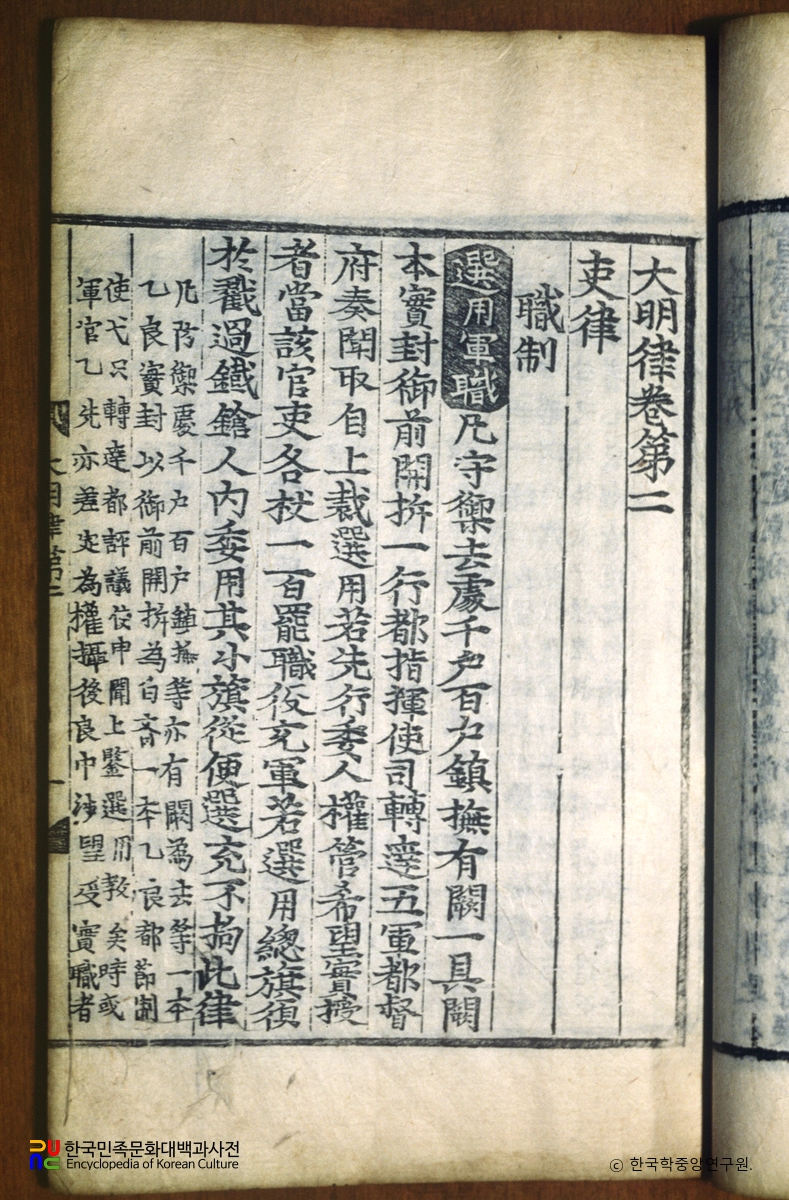 大明律卷第二
吏律
職制
選用軍職 凡守禦去處千户百户鎭撫有闕一具闕
本實封御前開拆一行都指揮使司轉達五軍都督
府奏聞取自上裁選用若先行委人權管希望實授
者當該官吏各杖一百罷職役充軍若選用總旗須
於戳過鐵鎗人內委用其小旗從便選充不拘此律
凡防禦處千户百户鎮撫等亦有闕為去等一本
乙良實封以御前開拆為白齊一本乙良都節制
使弋只轉達都評議使申聞上鑒選用敎矣時或
軍官乙先亦差定為權攝後良中望受實職者
大明律第二
한국민족문화대백과사전
Encyclopedia of Korean Culture
ⓒ 한국학중앙연구원.